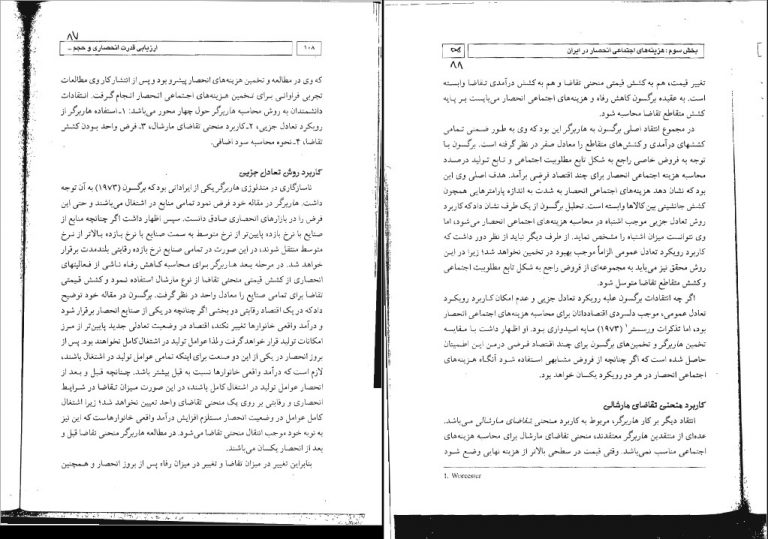 ۸۷
ارزیابی قدرت انحصاری و حجم ـ
۱۰۸
که وی در مطالعه و تخمین هزینه‌های انحصار پیشرو بود و پس از انتشار کار وی مطالعات
تجربی فراوانی برای تخمین هزینه‌های اجتماعی انحصار انجام گرفت. انتقادات
دانشمندان به روش محاسبه هاربرگر حول چهار محور می‌باشد: ۱ـ استفاده هاربرگر از
رویکرد تعادل جزیی، ۲ـ کاربرد منحنی تقاضای مارشال، ۳ـ فرض واحد بودن کشش
تقاضا، ۴ـ نحوه محاسبه سود اضافی.
کاربرد روش تعادل جزیی
ناسازگاری در متدلوژی هاربرگر یکی از ایراداتی بود که برگسون (۱۹۷۳) به آن توجه
داشت. هاربرگر در مقاله خود فرض نمود تمامی منابع در اشتغال می‌باشند و حتی این
فرض را در بازارهای انحصاری صادق دانست. سپس اظهار داشت اگر چنانچه منابع از
صنایع با نرخ بازده پایین‌تر از نرخ متوسط به سمت صنایع با نرخ بازده بالاتر از نرخ
متوسط منتقل شوند، در این صورت در تمامی صنایع نرخ بازده رقابتی بلندمدت برقرار
خواهد شد. در مرحله بعد هاربرگر برای محاسبه کاهش رفاه ناشی از فعالیتهای
انحصاری از کشش قیمتی منحنی تقاضا از نوع مارشال استفاده نمود و کشش قیمتی
تقاضا برای تمامی صنایع را معادل واحد در نظر گرفت. برگسون در مقاله خود توضیح
داد که در یک اقتصاد رقابتی دو بخشی اگر چنانچه در یکی از صنایع انحصار برقرار شود
و درآمد واقعی خانوارها تغییر نکند، اقتصاد در وضعیت تعادلی جدید پایین‌تر از مرز
امکانات تولید قرار خواهد گرفت و لذا عوامل تولید در اشتغال کامل نخواهند بود. پس از
بروز انحصار در یکی از این دو صنعت برای اینکه تمامی عوامل تولید در اشتغال باشند،
لازم است که درآمد واقعی خانوارها نسبت به قبل بیشتر باشد. چنانچه قبل و بعد از
انحصار عوامل تولید در اشتغال کامل باشند، در این صورت میزان تقاضا در شرایط
انحصاری و رقابتی بر روی یک منحنی تقاضای واحد تعیین نخواهد شد؛ زیرا اشتغال
کامل عوامل در وضعیت انحصار مستلزم افزایش درآمد واقعی خانوارهاست که این نیز
به نوبه خود موجب انتقال منحنی تقاضا می‌شود. در مطالعه هاربرگر منحنی تقاضا قبل و
بعد از انحصار یکسان می‌باشند.
بنابراین تغییر در میزان تقاضا و تغییر در میزان رفاه پس از بروز انحصار و همچنین
بخش سوم: هزینه‌های اجتماعی انحصار در ایران
۸۸
تغییر قیمت، هم به کشش قیمتی منحنی تقاضا و هم به کشش درآمدی تقاضا وابسته
است. به عقیده برگسون کاهش رفاه و هزینه‌های اجتماعی انحصار می‌بایست بر پایه
کشش متقاطع تقاضا محاسبه شود.
در مجموع انتقاد اصلی برگسون به هاربرگر این بود که وی به طور ضمنی تمامی
کششهای درآمدی و کششهای متقاطع را معادل صفر در نظر گرفته است. برگسون با
توجه به فروض خاصی راجع به شکل تابع مطلوبیت اجتماعی و تابع تولید درصدد
محاسبه هزینه اجتماعی انحصار برای چند اقتصاد فرضی برآمد. هدف اصلی وی این
بود که نشان دهد هزینه‌های اجتماعی انحصار به شدت به اندازه پارامترهایی همچون
کشش جانشینی بین کالاها وابسته است. تحلیل برگسون از یک طرف نشان داد که کاربرد
روش تعادل جزیی موجب اشتباه در محاسبه هزینه‌های اجتماعی انحصار می‌شود، اما
وی نتوانست میزان اشتباه را مشخص نماید. از طرف دیگر نباید از نظر دور داشت که
کاربرد رویکرد تعادل عمومی الزاماً موجب بهبود در تخمین نخواهد شد؛ زیرا در این
روش محقق نیز می‌باید به مجموعه‌ای از فروض راجع به شکل تابع مطلوبیت اجتماعی
و کشش متقاطع تقاضا متوسل شود.
اگر چه انتقادات برگسون علیه رویکرد تعادل جزیی و عدم امکان کاربرد رویکرد
تعادل عمومی، موجب دلسردی اقتصاددانان برای محاسبه هزینه‌های اجتماعی انحصار
بود، اما تذکرات ورسستر۱ (۱۹۷۳) مایه امیدواری بود. او اظهار داشت با مقایسه
تخمین هاربرگر و تخمین‌های برگسون برای چند اقتصاد فرضی در من این اطمینان
حاصل شده است که اگر چنانچه از فروض مشابهی استفاده شود آنگاه هزینه‌های
اجتماعی انحصار در هر دو رویکرد یکسان خواهد بود.
کاربرد منحنی تقاضای مارشالی
انتقاد دیگر بر کار هاربرگر، مربوط به کاربرد منحنی تقاضای مارشالی می‌باشد.
عده‌ای از منتقدین هاربرگر معتقدند، منحنی تقاضای مارشال برای محاسبه هزینه‌های
اجتماعی مناسب نمی‌باشد. وقتی قیمت در سطحی بالاتر از هزینه نهایی وضع شود
1. Worcester